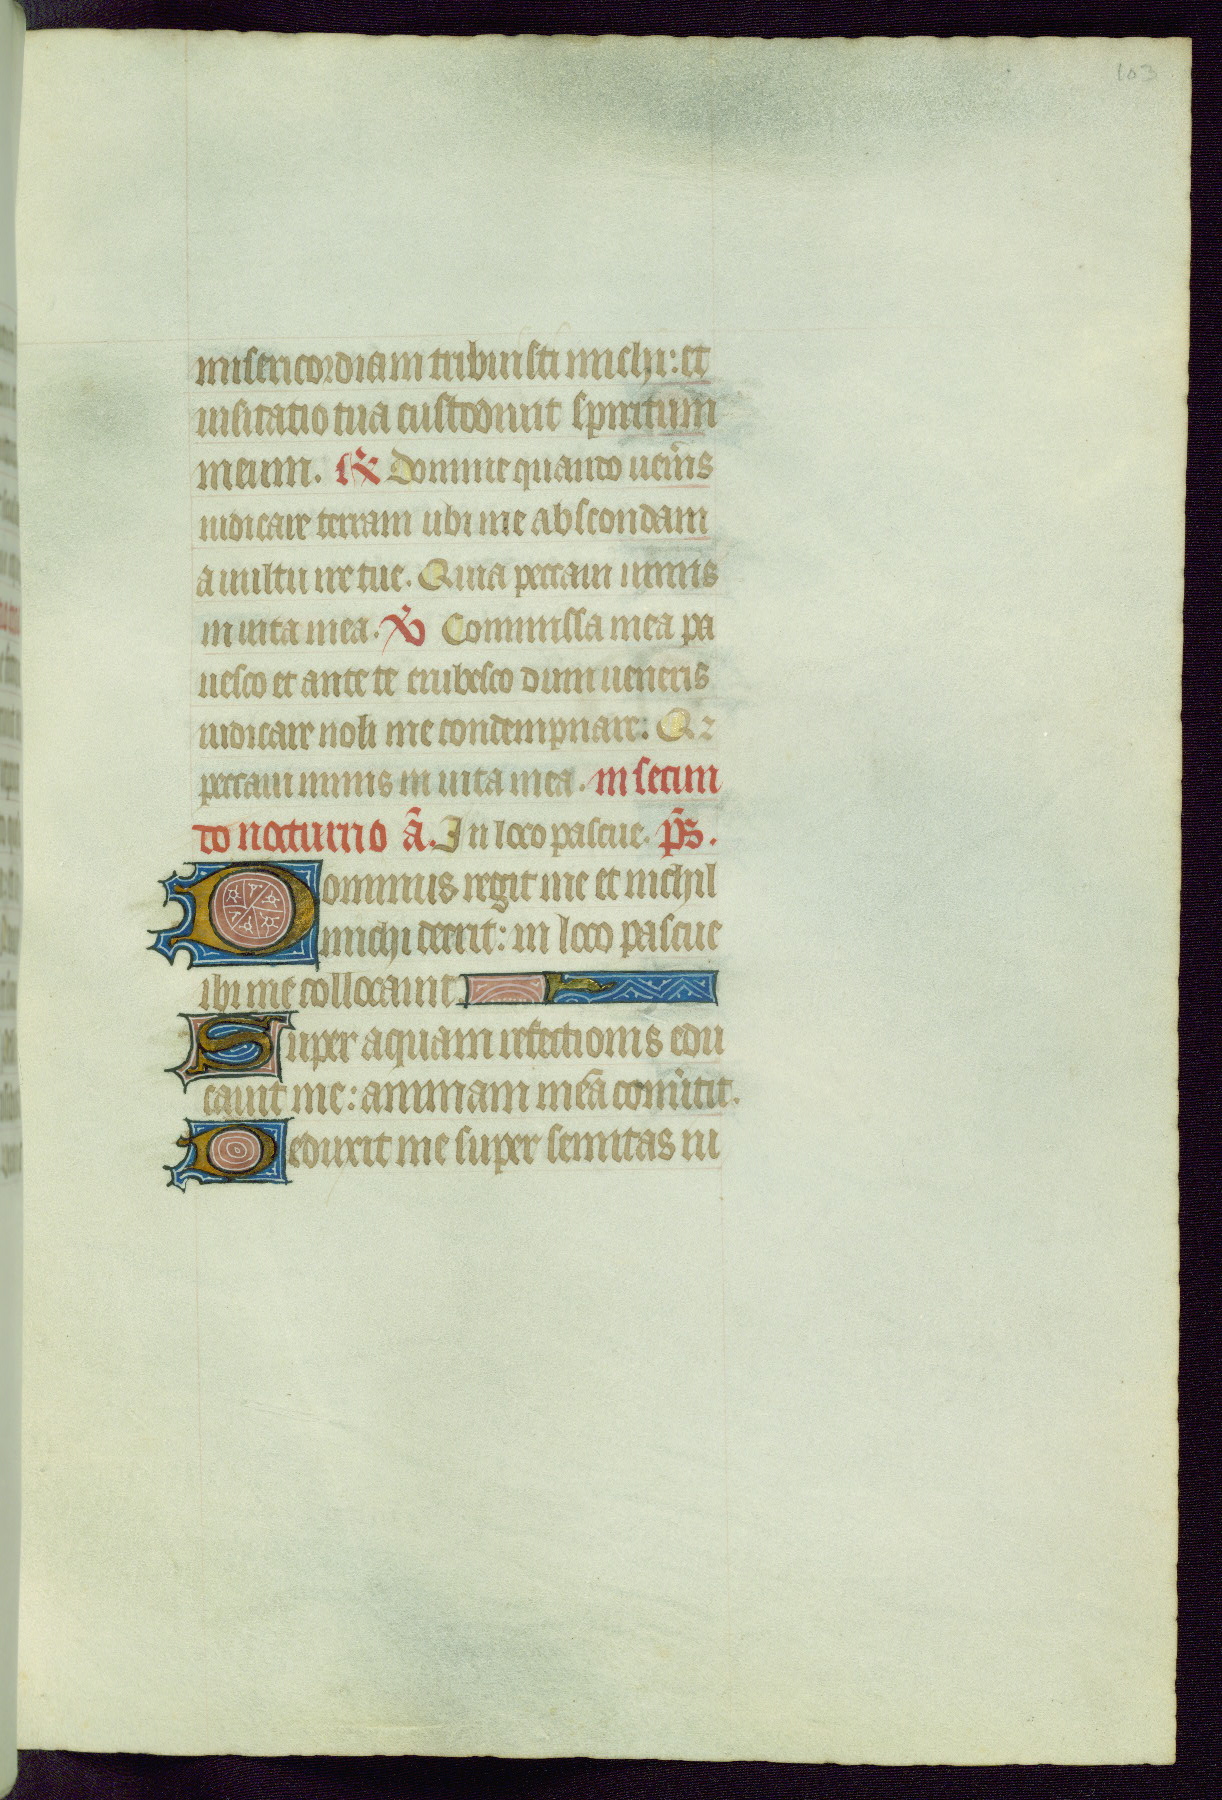 103
misericordiam tribuisti michi: et
uisitatio tua custodiuit spiritum
meum. R Domine quando uen̄is
iudicare terram ubi me abscondam
a uultu ire tue. Quia peccaui nimis
in uita mea. V̄ Commissa mea pa
uesco et ante te erubesco dum ueneris
iudicare noli me condempnare: Qz
peccaui nimis in uita mea. in secun
do nocturno ā. In loco pascue. p̄s.
Dominus regit me et nichil
michi deerit: in loco pascue
ibi me collocauit.
Super aquam refectionis edu
cauit me: animam meā conūtit.
Deduxit me super semitas iu